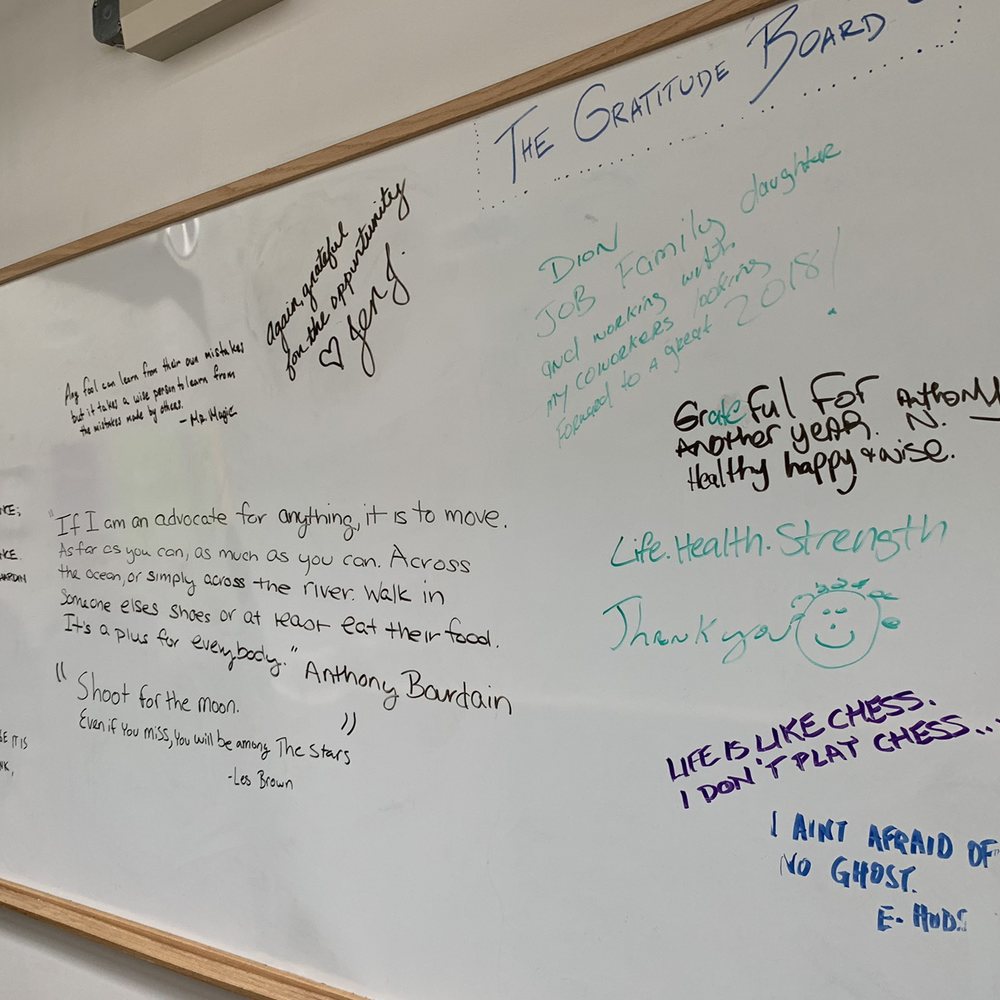 THE GRATITUDE BOARD
Again, grateful
for the oppurtunity
♡ Jen J.
Any fool can learn from their own mistakes
but it takes a wise person to learn from
the mistakes made by others.
- Mr. Magic
"If I am an advocate for anything, it is to move.
As far as you can, as much as you can. Across
the ocean, or simply across the river. Walk in
Someone elses shoes or at least eat their food.
It's a plus for everybody." Anthony Bourdain
"Shoot for the moon.
Even if You miss, You will be among The Stars"
-Les Brown
SE IT IS
DION
JOB Family daughter
and working with
my coworkers looking
forward to a great 2018!
Grateful For
Another yEAR.
Healthy happy + wise.
Anthony
N.
Life. Health. Strength
Thank you
LIFE IS LIKE CHESS.
I DON'T PLAT CHESS...
I AINT AFRAID OF
NO GHOST.
E- HUDS